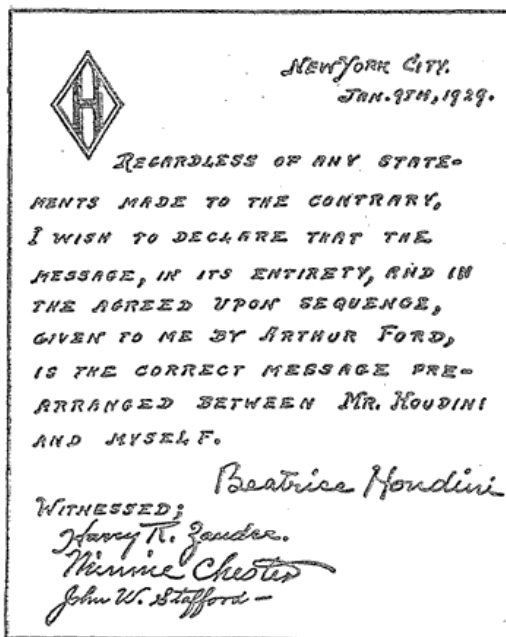 H
NEW YORK CITY.
JAN. 9TH, 1929.
REGARDLESS OF ANY STATE-
MENTS MADE TO THE CONTRARY,
I WISH TO DECLARE THAT THE
MESSAGE, IN ITS ENTIRETY, AND IN
THE AGREED UPON SEQUENCE,
GIVEN TO ME BY ARTHUR FORD,
IS THE CORRECT MESSAGE PRE-
ARRANGED BETWEEN MR. HOUDINI
AND MYSELF.
Beatrice Houdini
WITNESSED;
Harry R. Zander.
Minnie Chester
John W. Stafford -